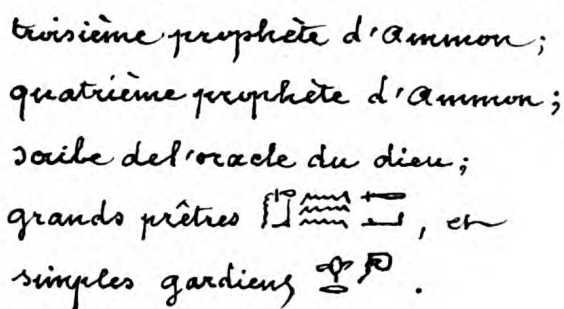 troisième prophète d'Ammon;
quatrième prophète d'Ammon;
scribe de l'oracle du dieu;
grands prêtres , et
simples gardiens .